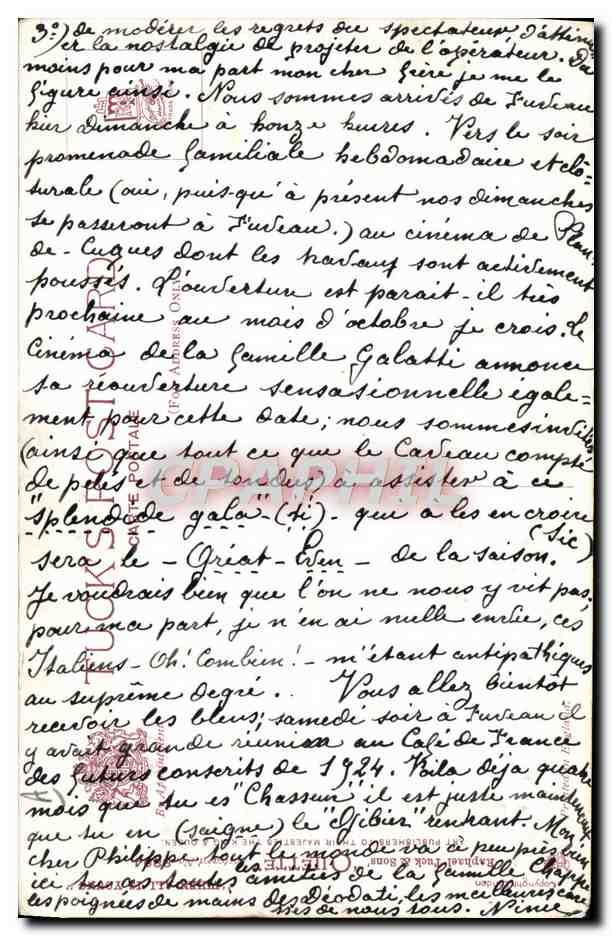 3º) de modérer les regrets du spectateur, d'attén-
er la nostalgie de projeter de l'opérateur. Du
moins pour ma part mon cher frère je me le
figure ainsi. Nous sommes arrivés de Fuveau
hier dimanche à honze heures. Vers le soir
promenade familiale hebdomadaire et clô-
turale (oui, puis-qu'à présent nos dimanches
se passeront à Fuveau.) au cinéma de Plan-
de-Cuques dont les travaux sont activement
poussés. L'ouverture est parait-il très
prochaine au mois d'octobre je crois. Le
Cinéma de la famille Galatti annonce
sa réouverture sensasionnelle égale-
ment pour cette date; nous sommes invités
(ainsi que tout ce que le Caveau compte
de pelés et de tondus) à assister à ce
"splendide gala"-(ti)- qui à les en croire
(sic)
sera le - Gréat - Even - de la saison.
Je voudrais bien que l'on ne nous y vit pas;
pour ma part, je n'en ai nulle envie, ces
Italiens - Oh! Combien! - m'étant antipathiques
au suprême degré. . Vous allez bientôt
recevoir les bleus; samedi soir à Fuveau il
y avait grande réunion au Café de France
des futurs conscrits de 1924. Voila déja quatre
mois que tu es "Chasseur" il est juste maintenant
que tu en (saigne) le "Gibier" rentrant. Mon
cher Philippe, tout le monde va à peu près bien
ici tu as toutes les amitiés de la famille Chappe
les poignées de mains des Déodati, les meilleures
de nous tous. Ninie
TUCK'S POST CARD
CARTE POSTALE
(FOR ADDRESS ONLY)
CPARHIL
Raphael Tuck & Sons
ART PUBLISHERS TO THEIR MAJESTIES THE KING & QUEEN